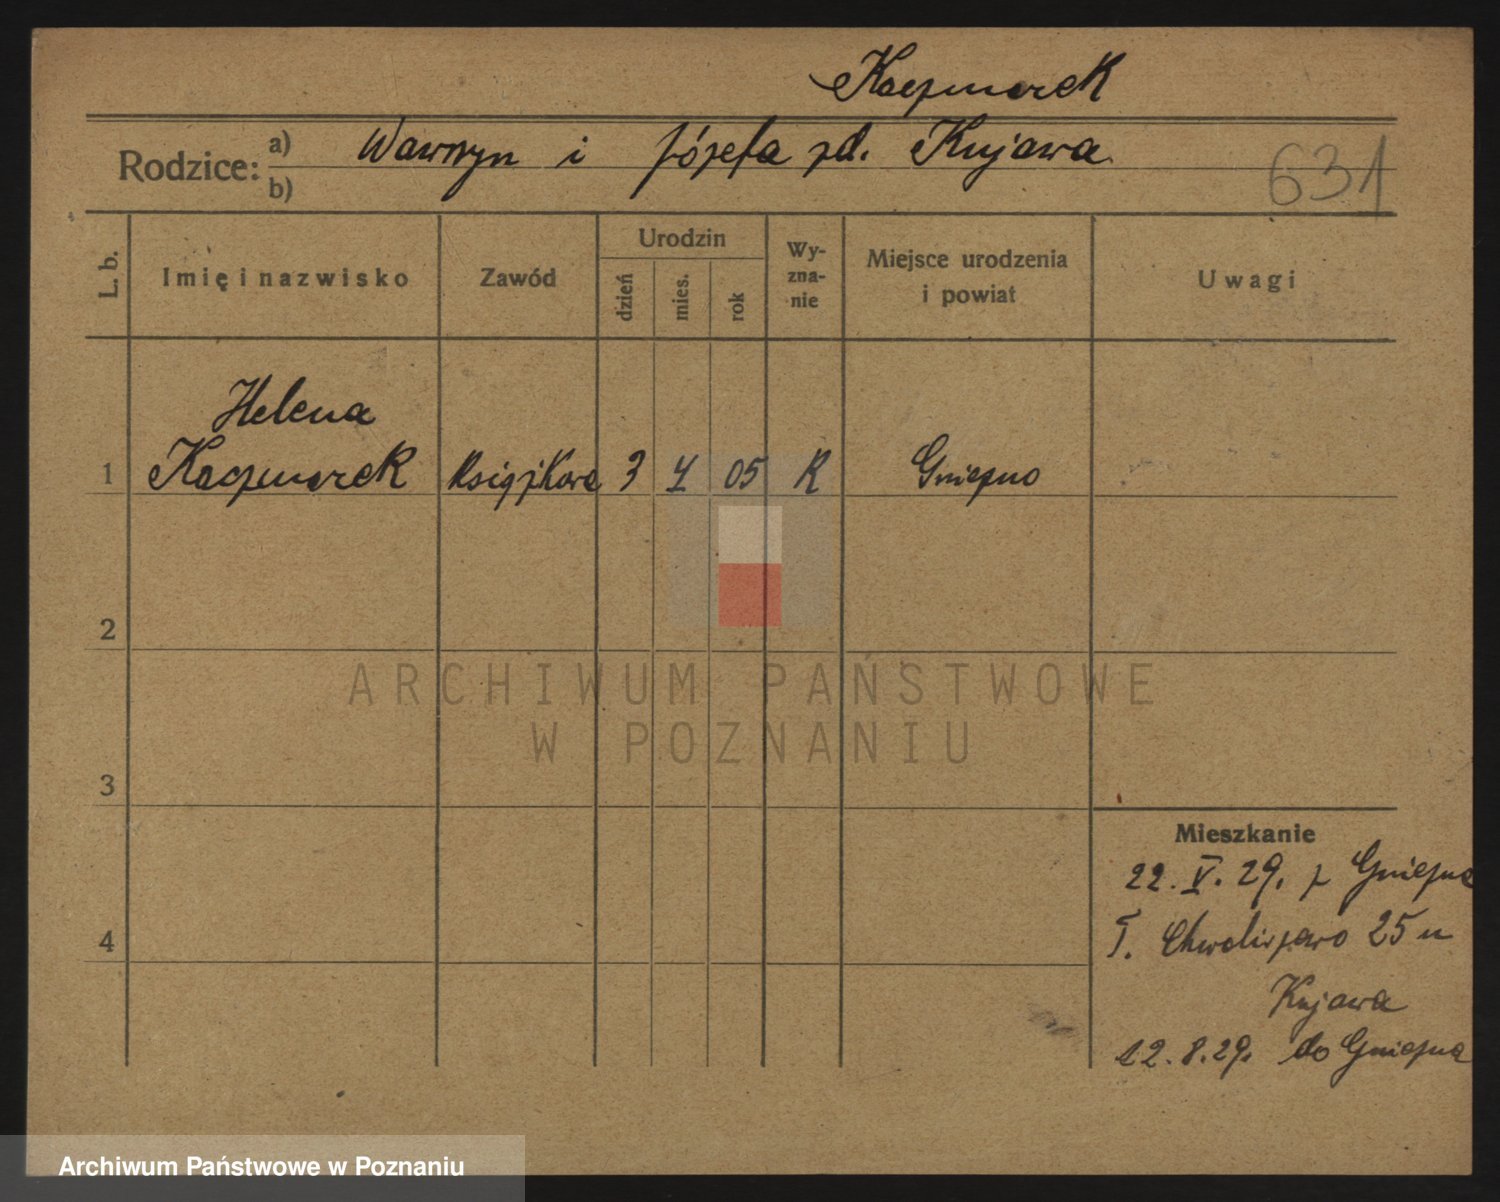 Kaczmarek
Rodzice: a) Wawrzyn i Józefa zd. Kujawa
b)
631
L. b. Imię i nazwisko Zawód Urodzin dzień mies. rok Wy-zna-nie Miejsce urodzenia i powiat Uwagi
Helena
1 Kaczmarek Książkowa 3 4 05 R Gniezno
2
3
4
Mieszkanie
22. V. 29. z Gniezna
Chwaliszewo 25 u
Kujawa
12. 8. 29. do Gniezna
ARCHIWUM PAŃSTWOWE
W POZNANIU
Archiwum Państwowe w Poznaniu